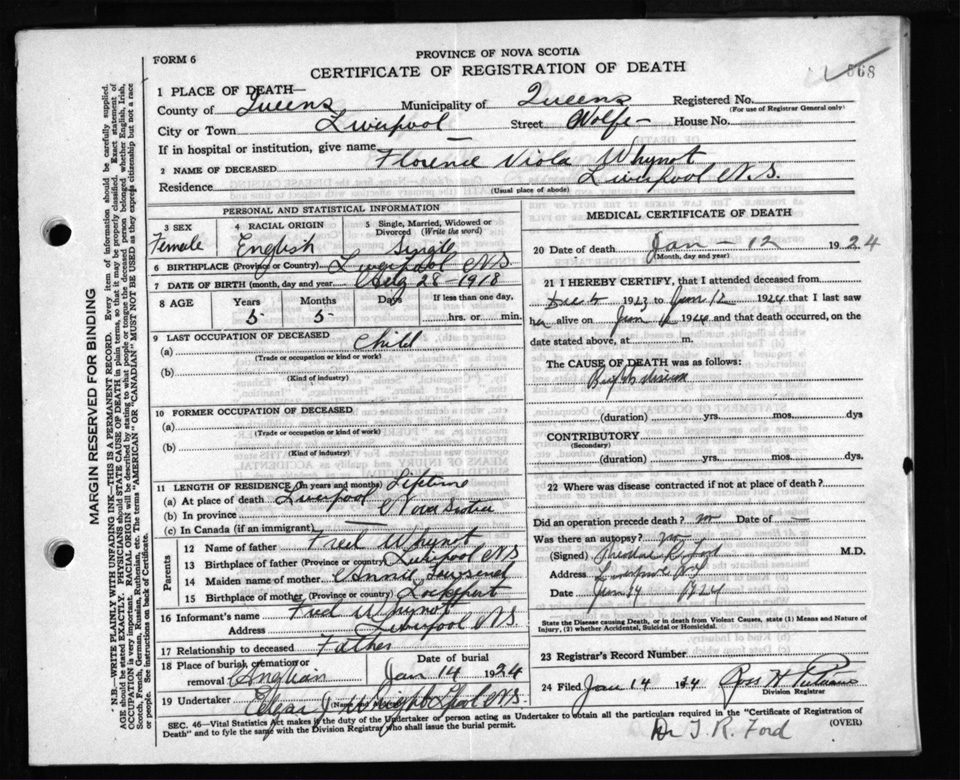 PROVINCE OF NOVA SCOTIA
FORM 6
CERTIFICATE OF REGISTRATION OF DEATH
568
1 PLACE OF DEATH—
County of Queens Municipality of Queens Registered No.
(For use of Registrar General only)
City or Town Liverpool Street Wolfe House No.
If in hospital or institution, give name
2 NAME OF DECEASED Florence Viola Whynot
Residence Liverpool N.S.
(Usual place of abode)
PERSONAL AND STATISTICAL INFORMATION
3 SEX 4 RACIAL ORIGIN 5 Single, Married, Widowed or Divorced (Write the word)
Female English Single
6 BIRTHPLACE (Province or Country) Liverpool NS
7 DATE OF BIRTH (month, day and year) 28 1918
8 AGE Years Months Days If less than one day,
5 5 hrs. or min.
9 LAST OCCUPATION OF DECEASED
(a) Child
(Trade or occupation or kind or work)
(b)
(Kind of industry)
10 FORMER OCCUPATION OF DECEASED
(a)
(Trade or occupation or kind of work)
(b)
(Kind of industry)
11 LENGTH OF RESIDENCE (In years and months) Lifetime
(a) At place of death Liverpool
(b) In province Nova Scotia
(c) In Canada (if an immigrant) —
Parents
12 Name of father Fred Whynot
13 Birthplace of father (Province or country) Liverpool NS
14 Maiden name of mother Annie
15 Birthplace of mother (Province or country) Lockeport
16 Informant's name Fred Whynot
Address Liverpool NS
17 Relationship to deceased Father
18 Place of burial, cremation or removal Date of burial
Jan 14 1924
19 Undertaker
SEC. 46—Vital Statistics Act makes it the duty of the Undertaker or person acting as Undertaker to obtain all the particulars required in the "Certificate of Registration of
Death" and to fyle the same with the Division Registrar who shall issue the burial permit. (OVER)
MEDICAL CERTIFICATE OF DEATH
20 Date of death Jan – 12 1924
(Month, day and year)
21 I HEREBY CERTIFY, that I attended deceased from
1923 to Jan 12 1924 that I last saw
her alive on Jan 1924 and that death occurred, on the
date stated above, at m.
The CAUSE OF DEATH was as follows:
(duration) yrs. mos. dys
CONTRIBUTORY
(Secondary)
(duration) yrs. mos. dys.
22 Where was disease contracted if not at place of death?
Did an operation precede death? no Date of —
Was there an autopsy? no
(Signed) M.D.
Address
Date 1924
State the Disease causing Death, or in death from Violent Causes, state (1) Means and Nature of
Injury, (2) whether Accidental, Suicidal or Homicidal.
23 Registrar's Record Number
24 Filed Jan 14 Ross H
Division Registrar
Dr J. R. Ford
MARGIN RESERVED FOR BINDING
N.B.—WRITE PLAINLY WITH UNFADING INK—THIS IS A PERMANENT RECORD. Every item of information should be carefully supplied.
AGE should be stated EXACTLY. PHYSICIANS should STATE CAUSE OF DEATH in plain terms, so that it may be properly classified. Exact statement of
OCCUPATION is very important. RACIAL ORIGIN will be described by stating to what people or tongue the deceased person belonged whether English, Irish,
Scotch, French, German, Russian, Ruthenian, etc. The terms "AMERICAN" OR "CANADIAN" MUST NOT BE USED as they express citizenship but not a race
or people. See instructions on back of Certificate.